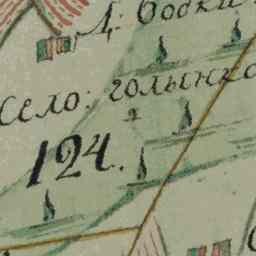 Д: бобки
Село: голынко
124.